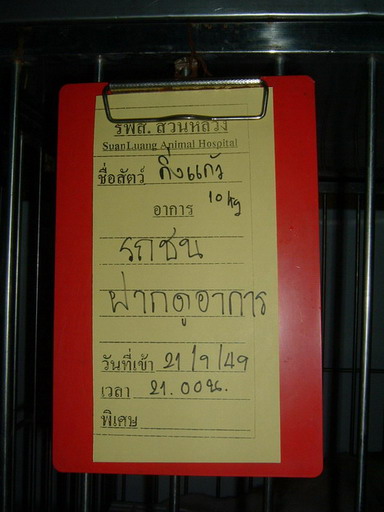 รพส. สวนหลวง
SuanLuang Animal Hospital
ชื่อสัตว์ กิ่งแก้ว
อาการ 10 kg
รถชน
ฝากดูอาการ
วันที่เข้า 21/9/49
เวลา 21.00น.
พิเศษ